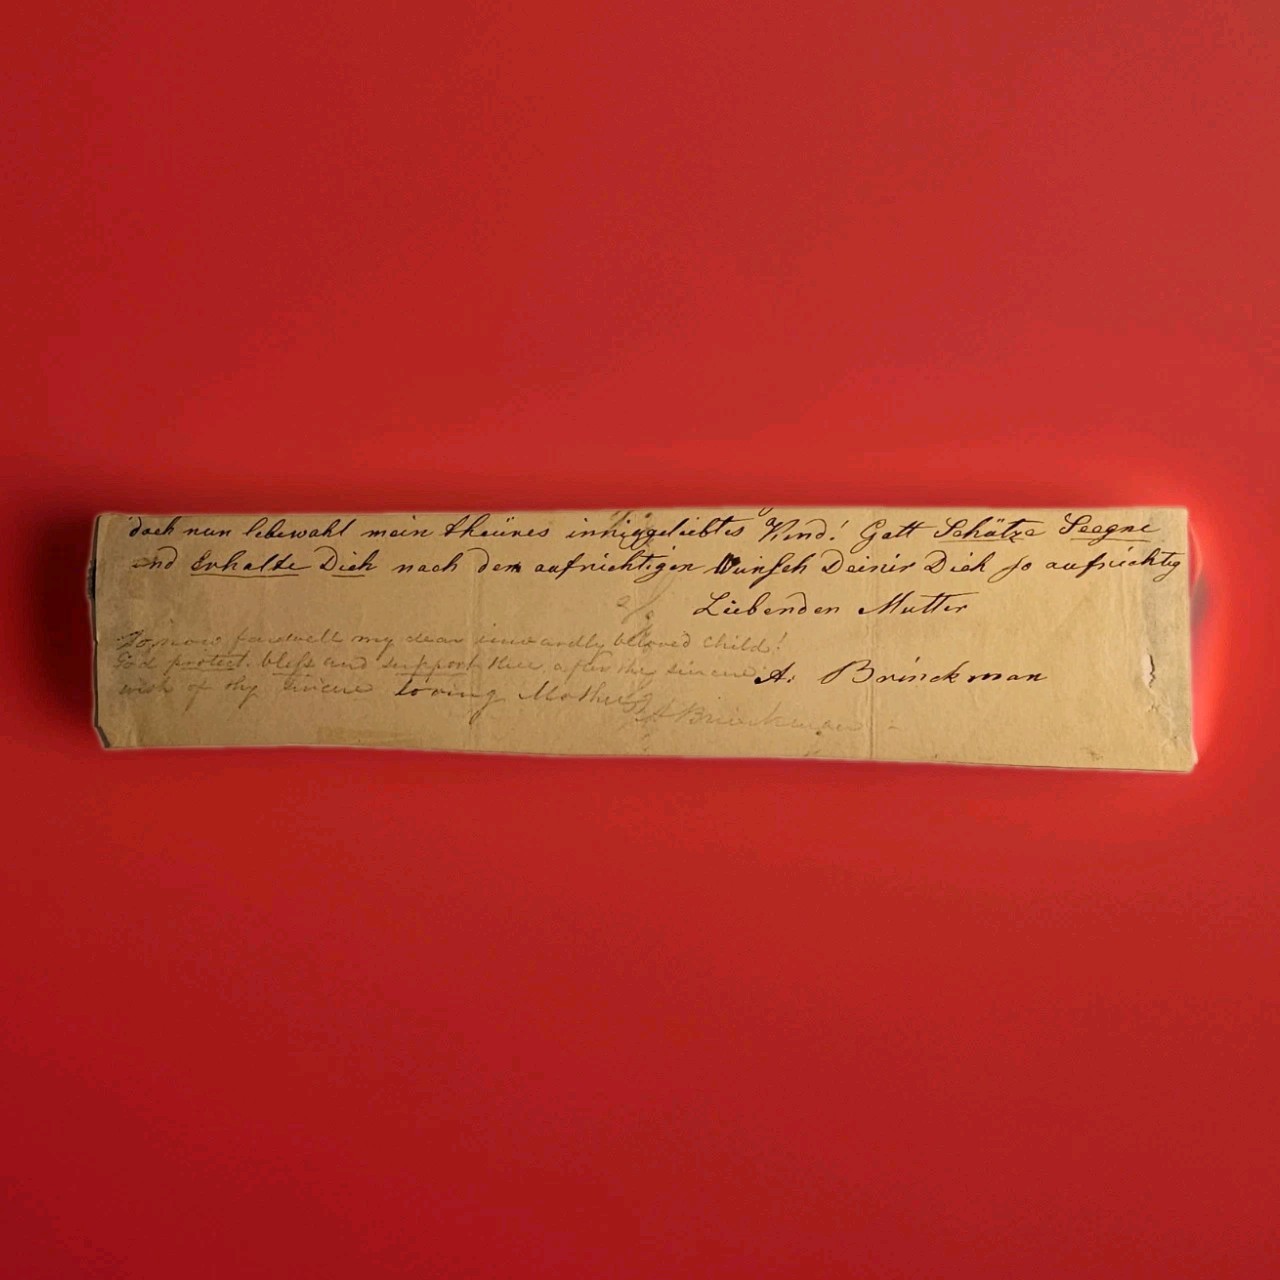 doch nun lebewohl mein theüres inniggeliebtes Kind! Gott Schütze Seegne
und Erhalte Dich nach dem aufrichtigen Wunsch Deiner Dich so aufrichtig
Liebenden Mutter
So now farewell my dear inwardly beloved child!
God protect, bless and support thee after the sincere
A: Brinckman
wish of thy sincere loving Mother
A Brinckman